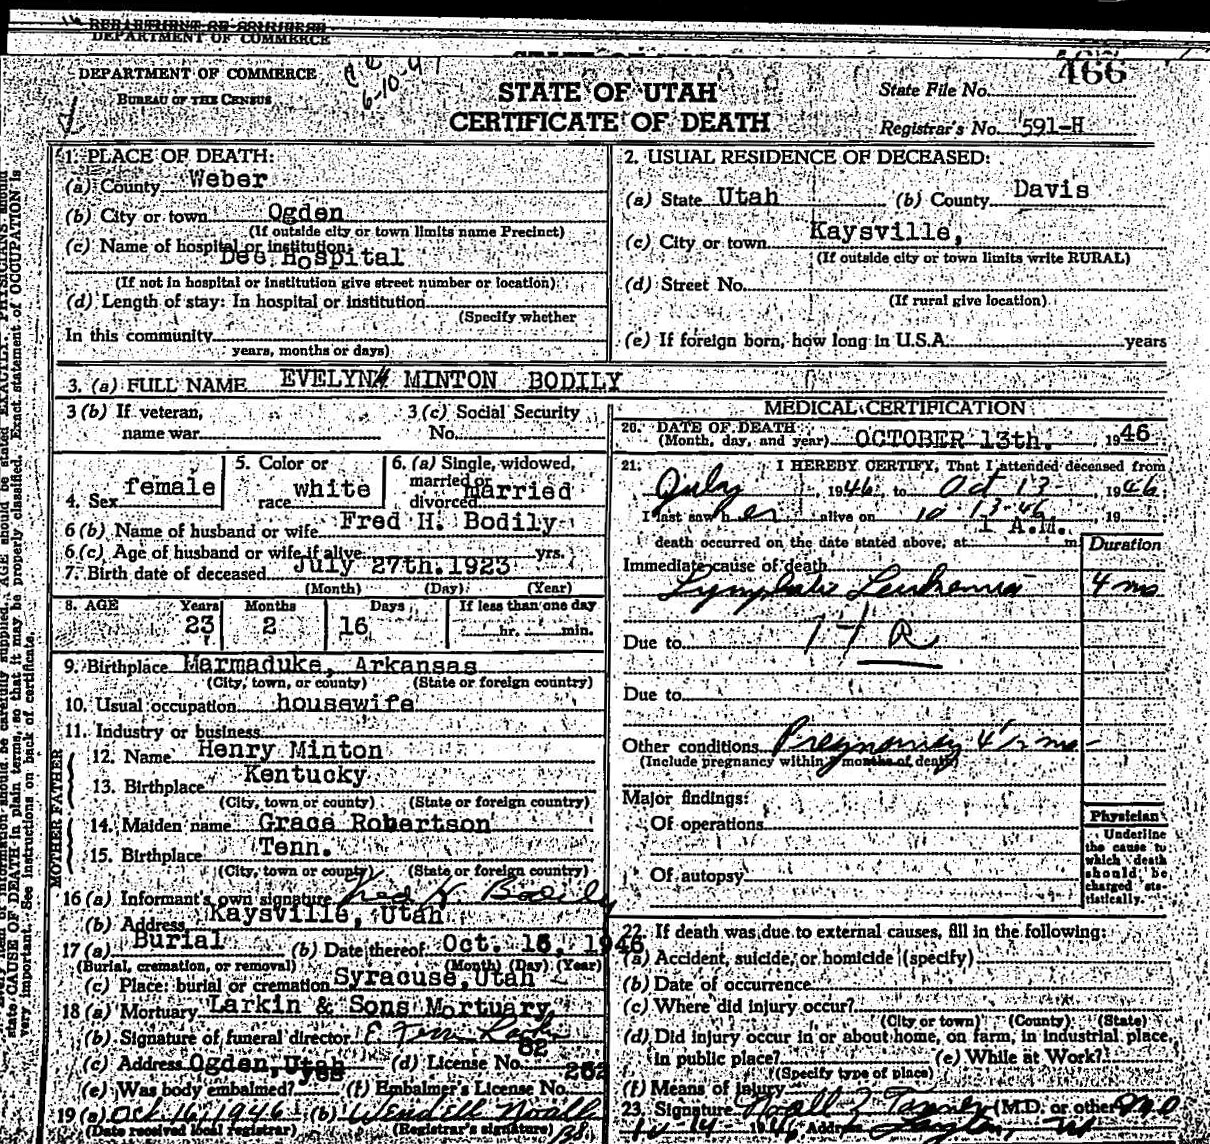 DEPARTMENT OF COMMERCE
DEPARTMENT OF COMMERCE
DEPARTMENT OF COMMERCE
BUREAU OF THE CENSUS
6-10-47
STATE OF UTAH
CERTIFICATE OF DEATH
State File No. 466
Registrar's No. 591-H
1. PLACE OF DEATH:
(a) County Weber
(b) City or town Ogden
(If outside city or town limits name Precinct)
(c) Name of hospital or institution:
Dee Hospital
(If not in hospital or institution give street number or location)
(d) Length of stay: In hospital or institution
(Specify whether
In this community
years, months or days)
2. USUAL RESIDENCE OF DECEASED:
(a) State Utah (b) County Davis
(c) City or town Kaysville,
(If outside city or town limits write RURAL)
(d) Street No.
(If rural give location)
(e) If foreign born, how long in U.S.A. years
3. (a) FULL NAME EVELYN MINTON BODILY
3 (b) If veteran,
name war
3 (c) Social Security
No.
4. Sex female
5. Color or
race white
6. (a) Single, widowed,
married or
divorced married
6 (b) Name of husband or wife Fred H. Bodily
6 (c) Age of husband or wife if alive yrs.
7. Birth date of deceased July 27th. 1923
(Month) (Day) (Year)
8. AGE Years Months Days If less than one day
23 2 16 hr. min.
9. Birthplace Marmaduke, Arkansas
(City, town, or county) (State or foreign country)
10. Usual occupation housewife
11. Industry or business
FATHER
12. Name Henry Minton
13. Birthplace Kentucky
(City, town or county) (State or foreign country)
MOTHER
14. Maiden name Grace Robertson
15. Birthplace Tenn.
(City, town or county) (State or foreign country)
16 (a) Informant's own signature Fred H. Bodily
(b) Address Kaysville, Utah
17 (a) Burial (b) Date thereof Oct. 16, 1946
(Burial, cremation, or removal) (Month) (Day) (Year)
(c) Place: burial or cremation Syracuse, Utah
18 (a) Mortuary Larkin & Sons Mortuary
(b) Signature of funeral director
(c) Address Ogden, Utah (d) License No. 82
(e) Was body embalmed? yes (f) Embalmer's License No. 262
19 (a) Oct 16, 1946 (b) Wendell Noall
(Date received local registrar) (Registrar's signature)
MEDICAL CERTIFICATION
20. DATE OF DEATH
(Month, day, and year) OCTOBER 13th. , 1946
21. I HEREBY CERTIFY, That I attended deceased from
July , 1946, to Oct 13 , 1946
I last saw her alive on 10-13-46 , 19
death occurred on the date stated above, at 1 A.M. m
Duration
Immediate cause of death
Lymphatic Leukemia 4 mo
Due to
Due to
Other conditions Pregnancy 4 1/2 mo
(Include pregnancy within 3 months of death)
Major findings:
Of operations
Of autopsy
Physician
Underline
the cause to
which death
should be
charged sta-
tistically.
22. If death was due to external causes, fill in the following:
(a) Accident, suicide, or homicide (specify)
(b) Date of occurrence
(c) Where did injury occur?
(City or town) (County) (State)
(d) Did injury occur in or about home, on farm, in industrial place,
in public place? (e) While at Work?
(Specify type of place)
(f) Means of injury
23. Signature Noall Z Tanner (M.D. or other) MD
10-14 1946 Address Layton, Ut